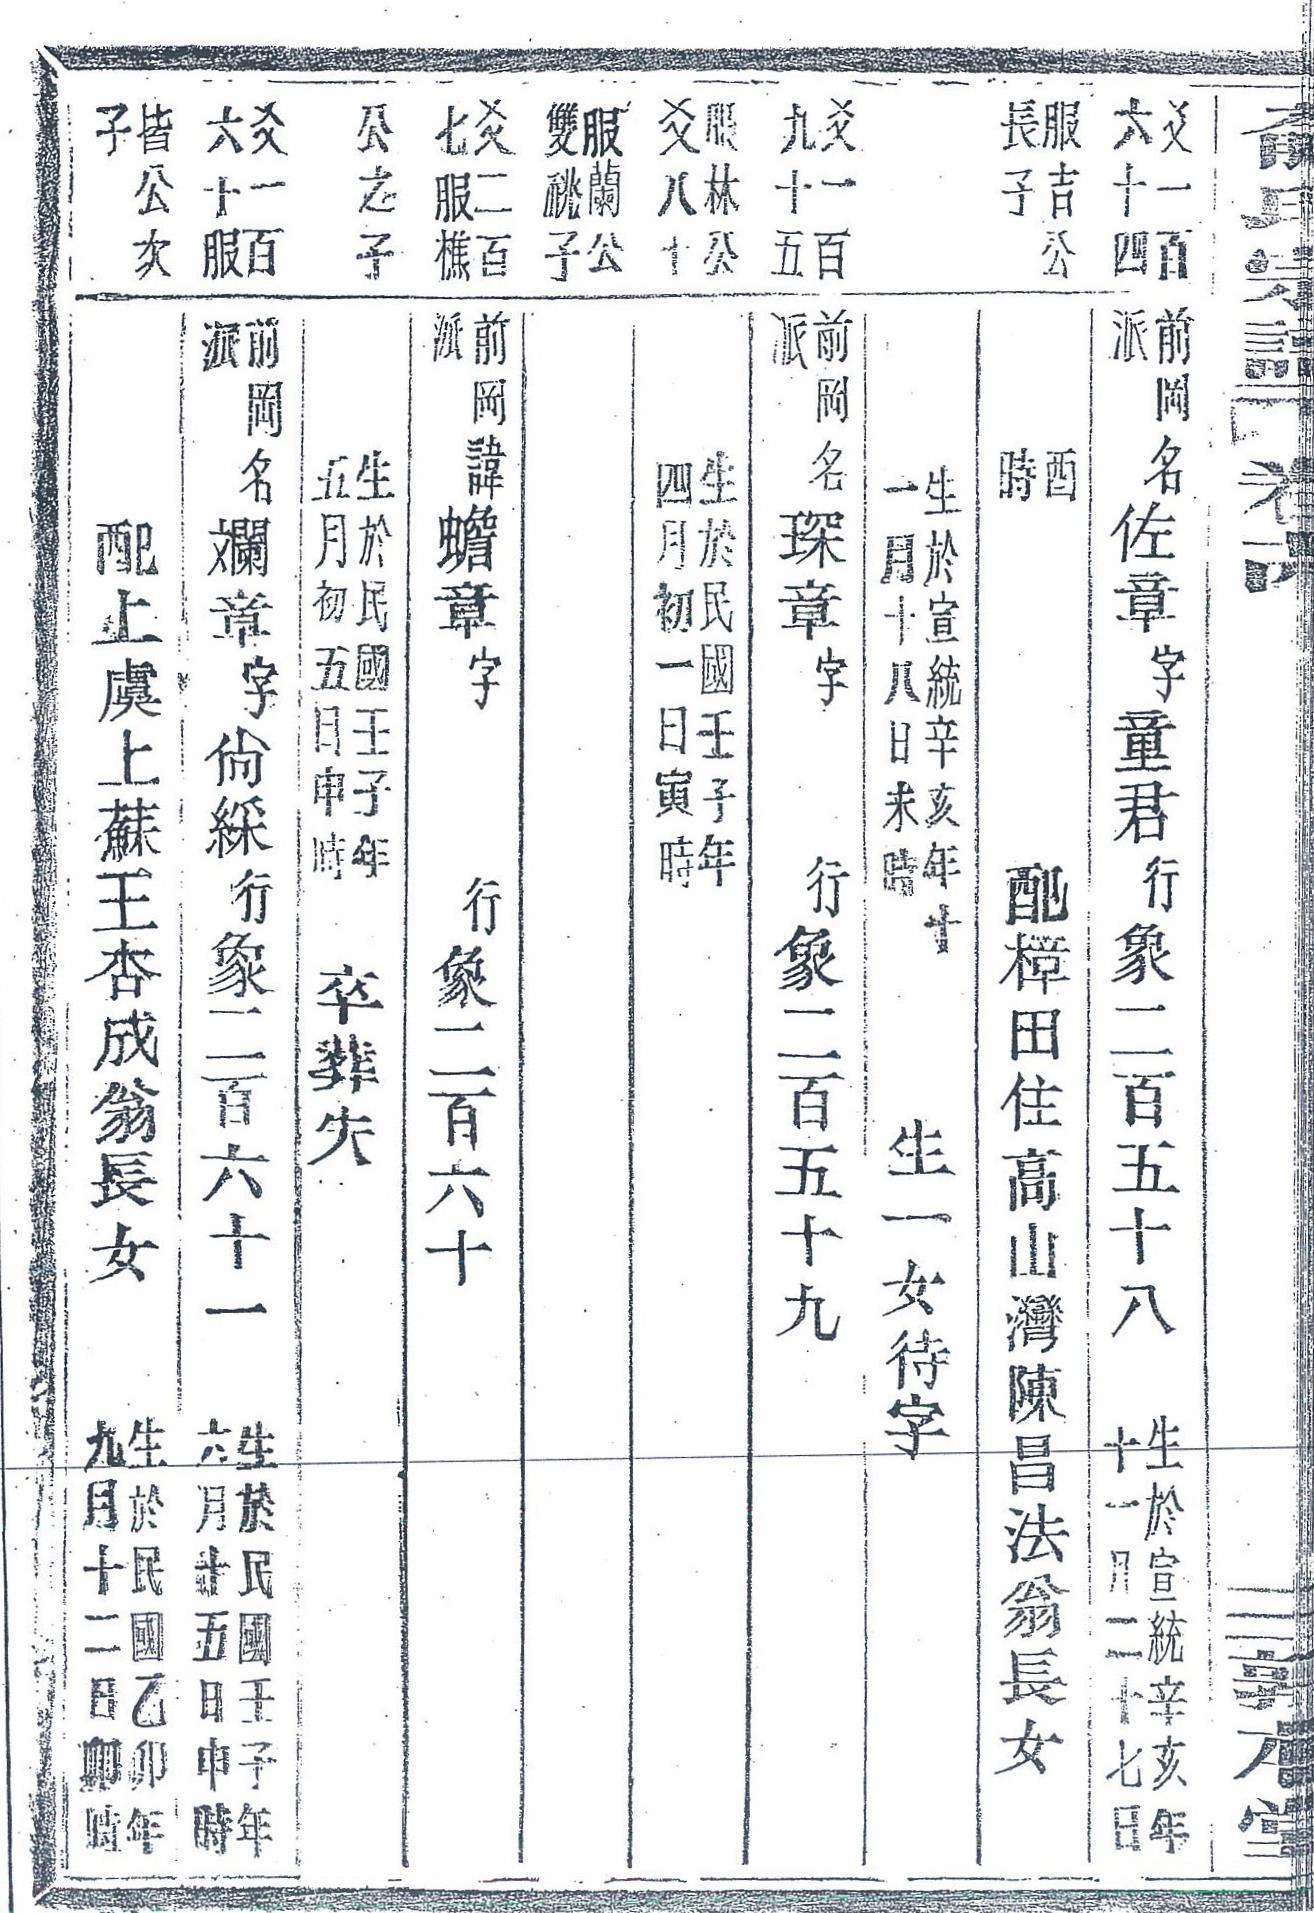 俞氏宗譜 卷六
敦本堂
爻一百六十四
服吉公長子
前岡派
名佐章字童君行象二百五十八
生於宣統辛亥年十一月二十七日
酉時
配樟田住高山灣陳昌法翁長女
生於宣統辛亥年十一月十八日未時
生一女待字
爻一百九十五
服林公
前岡派
名琛章字 行象二百五十九
爻八十
生於民國壬子年四月初一日寅時
服蘭公雙祧子
爻二百七服樵
公之子
前岡派
諱蟾章字 行象二百六十
生於民國壬子年五月初五日申時
卒葬失
爻一百六十服
皆公次子
前岡派
名斕章字尙綵行象二百六十一
生於民國壬子年六月廿五日申時
配上虞上蘇王杏成翁長女
生於民國乙卯年九月十二日卿時